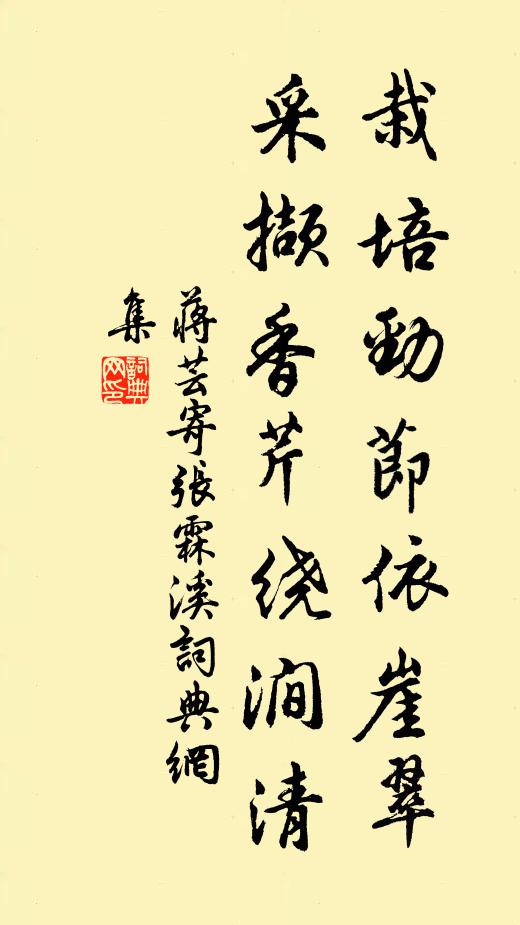 栽培勁節依崖翠
采擷香芹绕澗清
蔣芸寄張霖溪詞典網
集
詞典網印